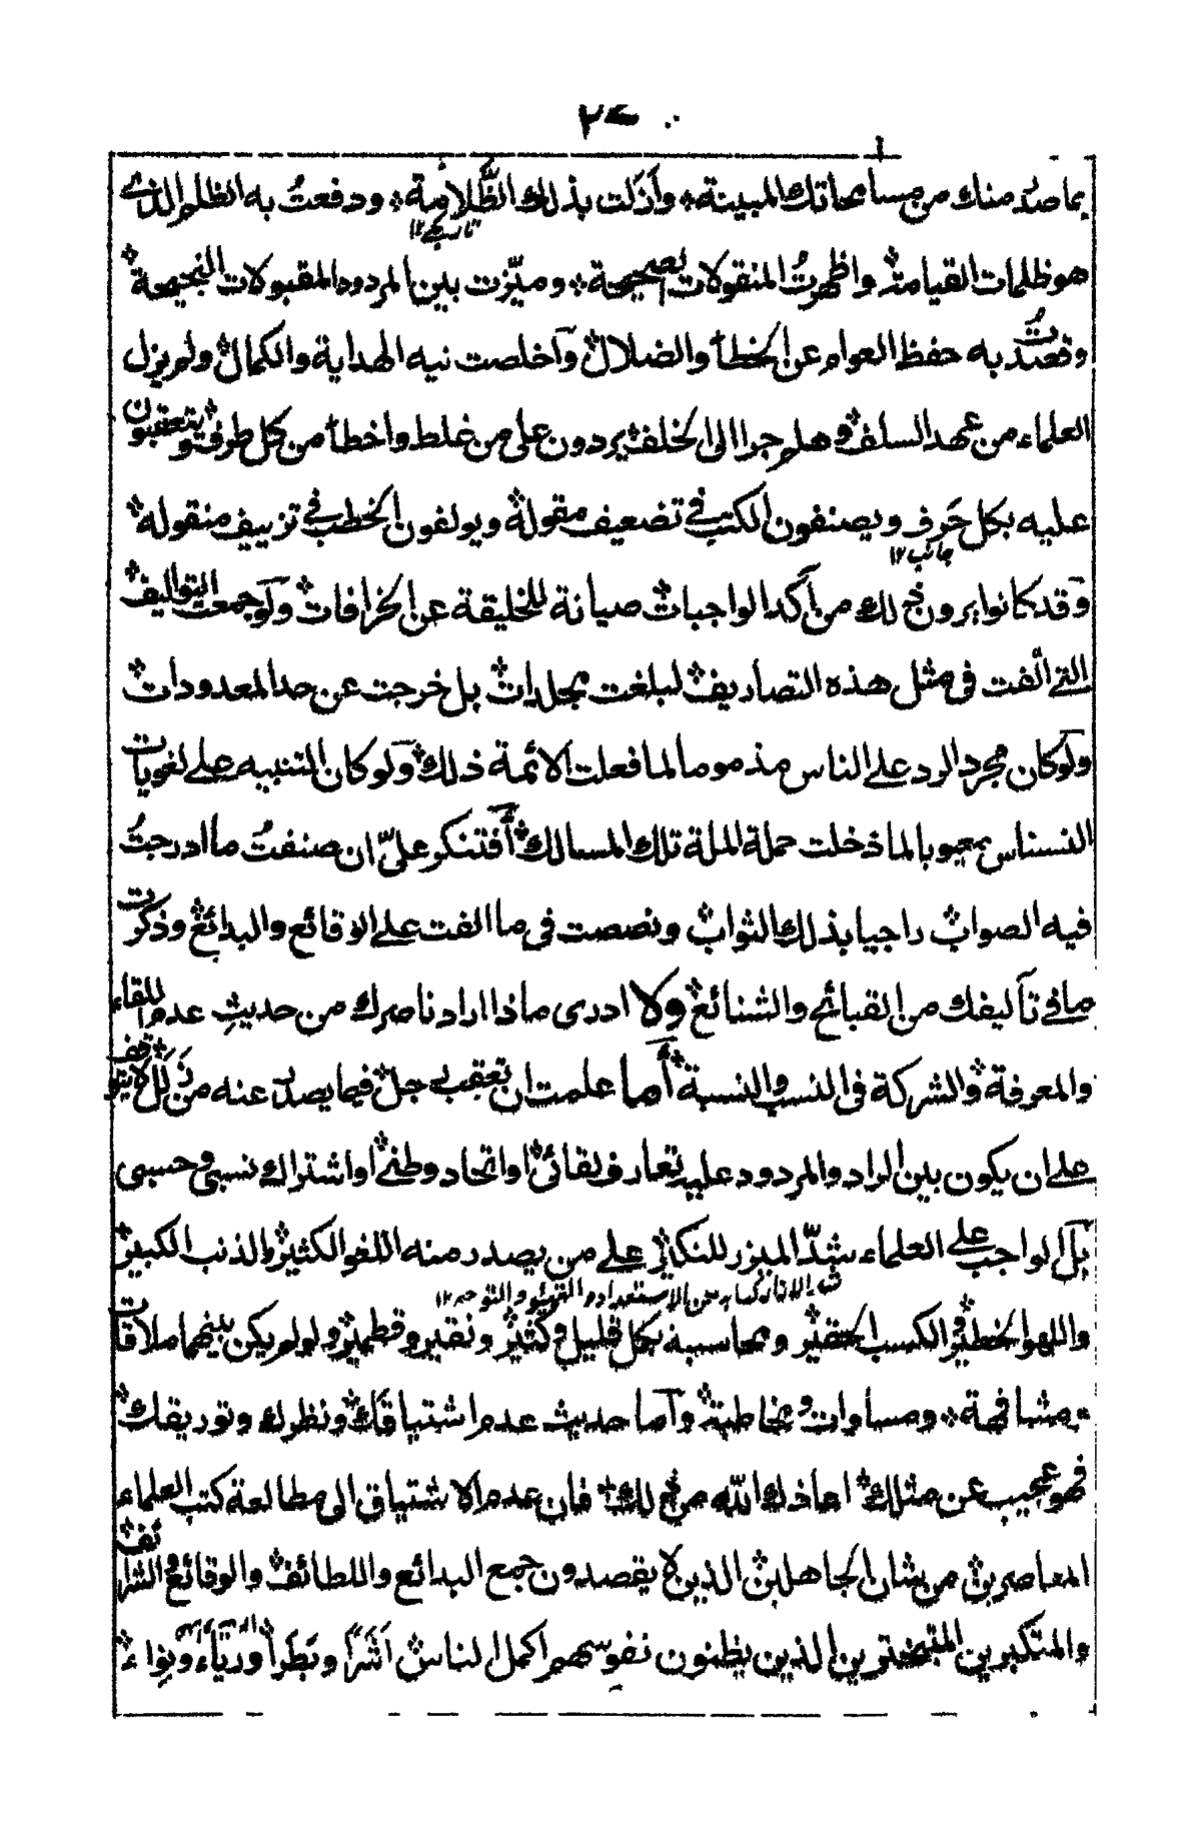 بما صدر منك من مسامحاتك المبينة * وأزلت بذلك الظُّلامة * ودفعتُ به الظلم الذي
هو ظلمات القيامة * واظهرتُ المنقولات الصحيحة * وميّزت بين المردود المقبولات النجيحة *
وقصدتُ به حفظ العوام عن الخطأ والضلال * وأخلصت نيه الهداية والكمال * ولم يزل
العلماء من عهد السلف * وهلم جرا الى الخلف * يردون على من غلط واخطأ من كل طرف * ويتعقبون
عليه بكل حَرف ويصنفون الكتب في تضعيف مقولة * ويولفون الخطب في تزييف منقوله *
جانب ١٢
وقد كانوا يرون ذلك من أكد الواجبات * صيانة للخليقة عن الخرافات * ولو جمعت التواليف *
التي ألفت في مثل هذه التصاريف * لبلغت مجلدات * بل خرجت عن حد المعدودات *
ولو كان مجرد الرد على الناس مذموما لما فعلت الائمة ذلك * ولو كان التنبيه على لغويات
النسناس معيوبا لما دخلت حملة الملة تلك المسالك * أفتنكر عليّ ان صنفتُ ما ادرجتُ
فيه الصواب * راجيا بذلك الثواب * ونصصت في ما الفت على الوقائع والبدائع * وذكرت
ما في تآليفك من القبائح والشنائع * ولا ادرى ماذا اراد ناصرك من حديثِ عدم اللقاء
والمعرفة * والشركة في النسب والنسبة * أما علمت ان تعقب رجل * فيما يصدر عنه من زلل لا يتوقف *
على ان يكون بين الراد والمردود عليه تعارف لقائى * او اتحاد وطنے * او اشتراك نسبى وحسبى
بل الواجب على العلماء شدّ الميزر للنكير * على من يصدر منه اللغو الكثير * والذنب الكبير *
شد الازار كنايه عن الاستعداد و التهيؤ والتوجه ١٢
واللهو الخطير * والكسب الحقير * ومحاسبة بكل قليل وكثير * ونقير وقطمير * ولو لم يكن بينهما ملاقات
مشافهة * ومساوات ومخاطبة * وأما حديث عدم اشتياقك * ونظرك وتوريقك *
فهو عجيب عن مثلك * اعاذك الله من ذلك * فان عدم الاشتياق الى مطالعة كتب العلماء
المعاصرين * من شان الجاهلين * الذين لا يقصدون جمع البدائع واللطائف * والوقائع * الشرائف *
والمتكبرين المتبخترين الذين يظنون نفوسهم اكمل الناس * أشَرًا وبَطَرا * ورياءً وبِواء *